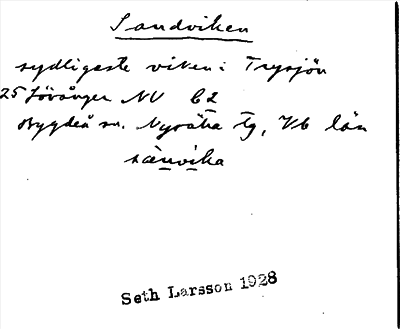 Sandviken
sydligaste viken i Trysjön
25 Lövånger NV C2
Bygdeå sn. Nysätra tg, Vb län
sænvika
Seth Larsson 1928